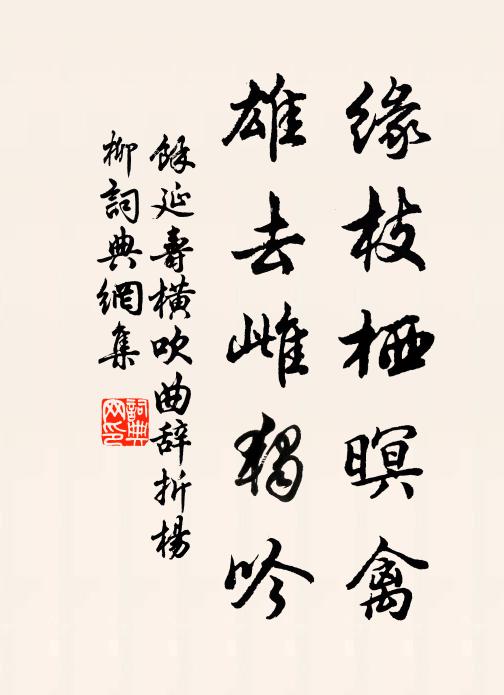 緣枝栖暝禽
雄去雌獨吟
餘延壽橫吹曲辭折楊
柳詞典網集
詞典
网印